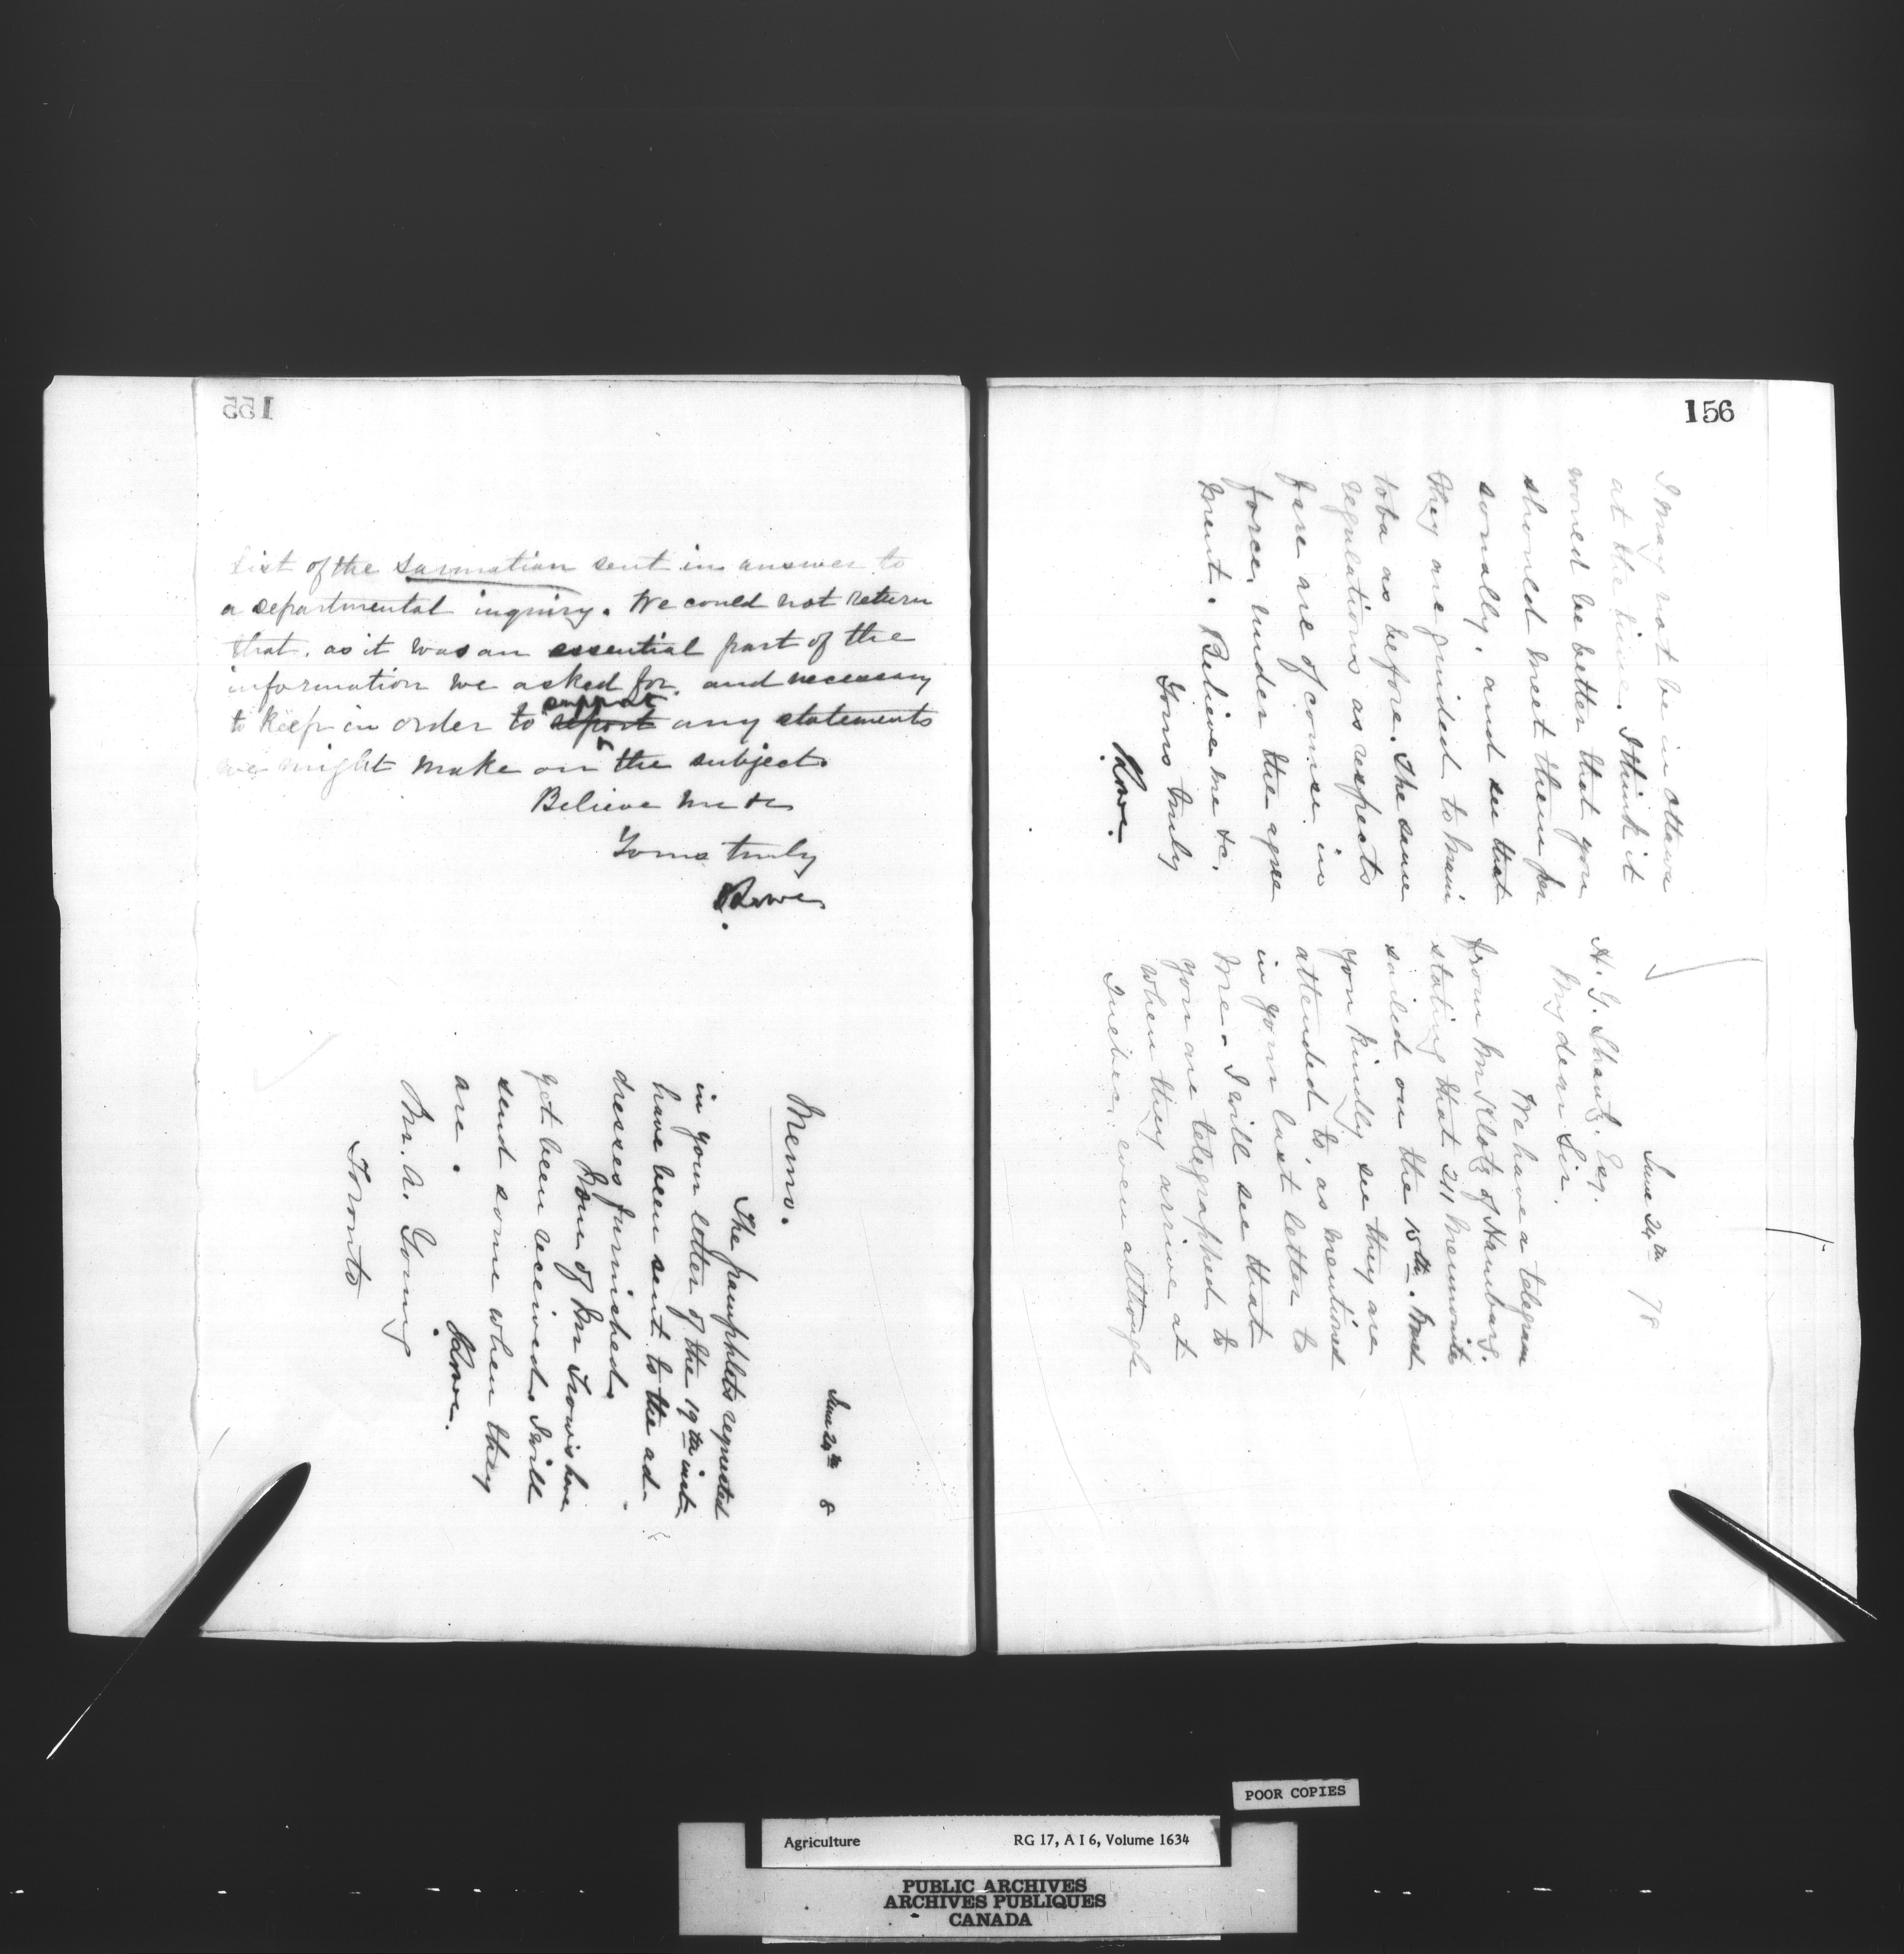 155
list of the Sarmatian sent in answer to
a departmental inquiry. We could not return
that, as it was an essential part of the
information we asked for, and necessary
support
to keep in order to report any statements
we might make on the subject.
Believe me &c
Yours truly
Lowe
June 24th 8
Memo.
The pamphlets requested
in your letter of the 19th inst
have been sent to the ad-
dresses furnished.
None of Mr Trow's have
yet been received. I will
send some when they
are.
Lowe.
Mr. A. Young
Toronto
156
June 24th 78
H. G. Shantz. Esq.
My dear Sir.
We have a telegram
from Mr Klotz of Hamburg.
stating that 211 Mennonites
sailed on the 15th.
you kindly see they are
attended to, as mentioned
in your last letter to
me. I will see that
you are telegraphed to
when they arrive at
Quebec, even although
I may not be in Ottawa
at the time. I think it
would be better that you
should meet them per
sonally, and see that
they are guided to Mani
toba as before. The same
regulations as respects
fare are of course in
force, under the agree
ment. Believe me &c.
Yours truly
Lowe.
POOR COPIES
Agriculture RG 17, A I 6, Volume 1634
PUBLIC ARCHIVES
ARCHIVES PUBLIQUES
CANADA